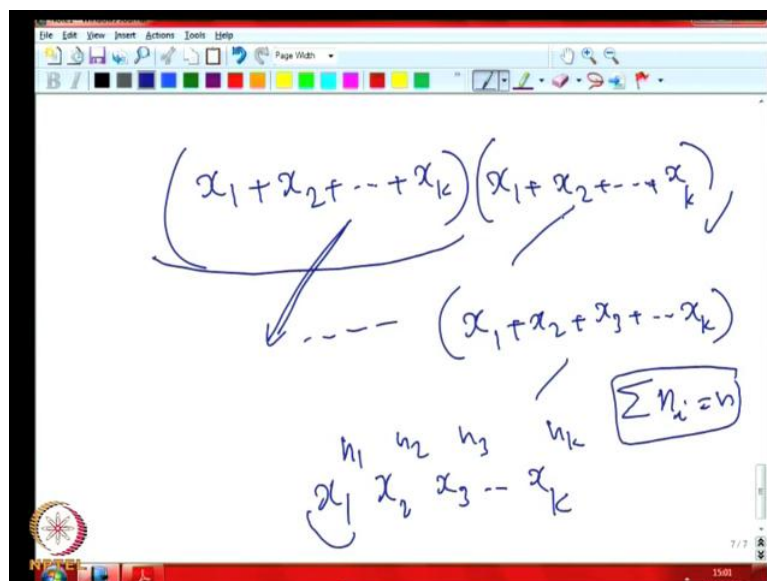 File Edit View Insert Actions Tools Help
Page Width
B I
(x₁ + x₂ + --- + xₖ)(x₁ + x₂ + --- + xₖ)
---- (x₁ + x₂ + x₃ + -- xₖ)
∑ nᵢ = n
n₁ n₂ n₃ nₖ
x₁ x₂ x₃ -- xₖ
7/7
NPTEL
15:01